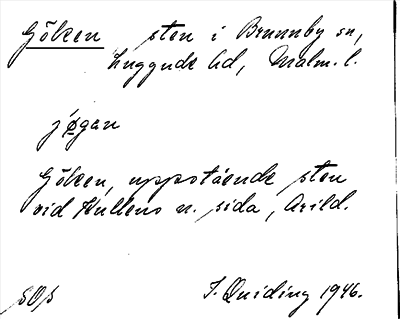 Göken sten i Brunnby sn,
Luggude hd, Malm. l.
jøgan
Göken, uppstående sten
vid Kullens n. sida, Arild.
SOS J. Quiding 1946.